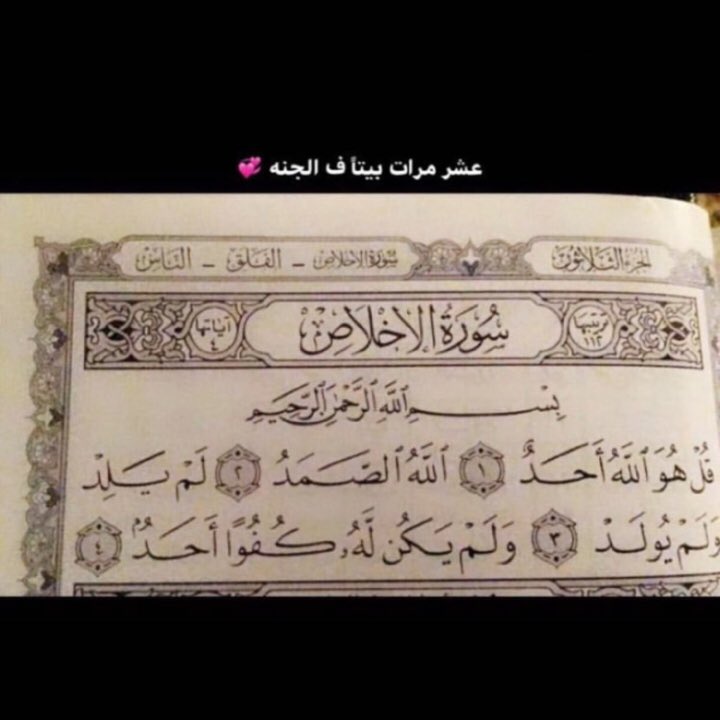 عشر مرات بيتاً ف الجنه 💞
الجزء الثلاثون سورة الإخلاص - الفلق - الناس
ترتيبها ١١٢ سُورَةُ الإِخْلَاصِ آياتها ٤
بِسْمِ ٱللَّهِ ٱلرَّحْمَٰنِ ٱلرَّحِيمِ
قُلْ هُوَ ٱللَّهُ أَحَدٌ ١ ٱللَّهُ ٱلصَّمَدُ ٢ لَمْ يَلِدْ
وَلَمْ يُولَدْ ٣ وَلَمْ يَكُن لَّهُۥ كُفُوًا أَحَدٌۢ ٤